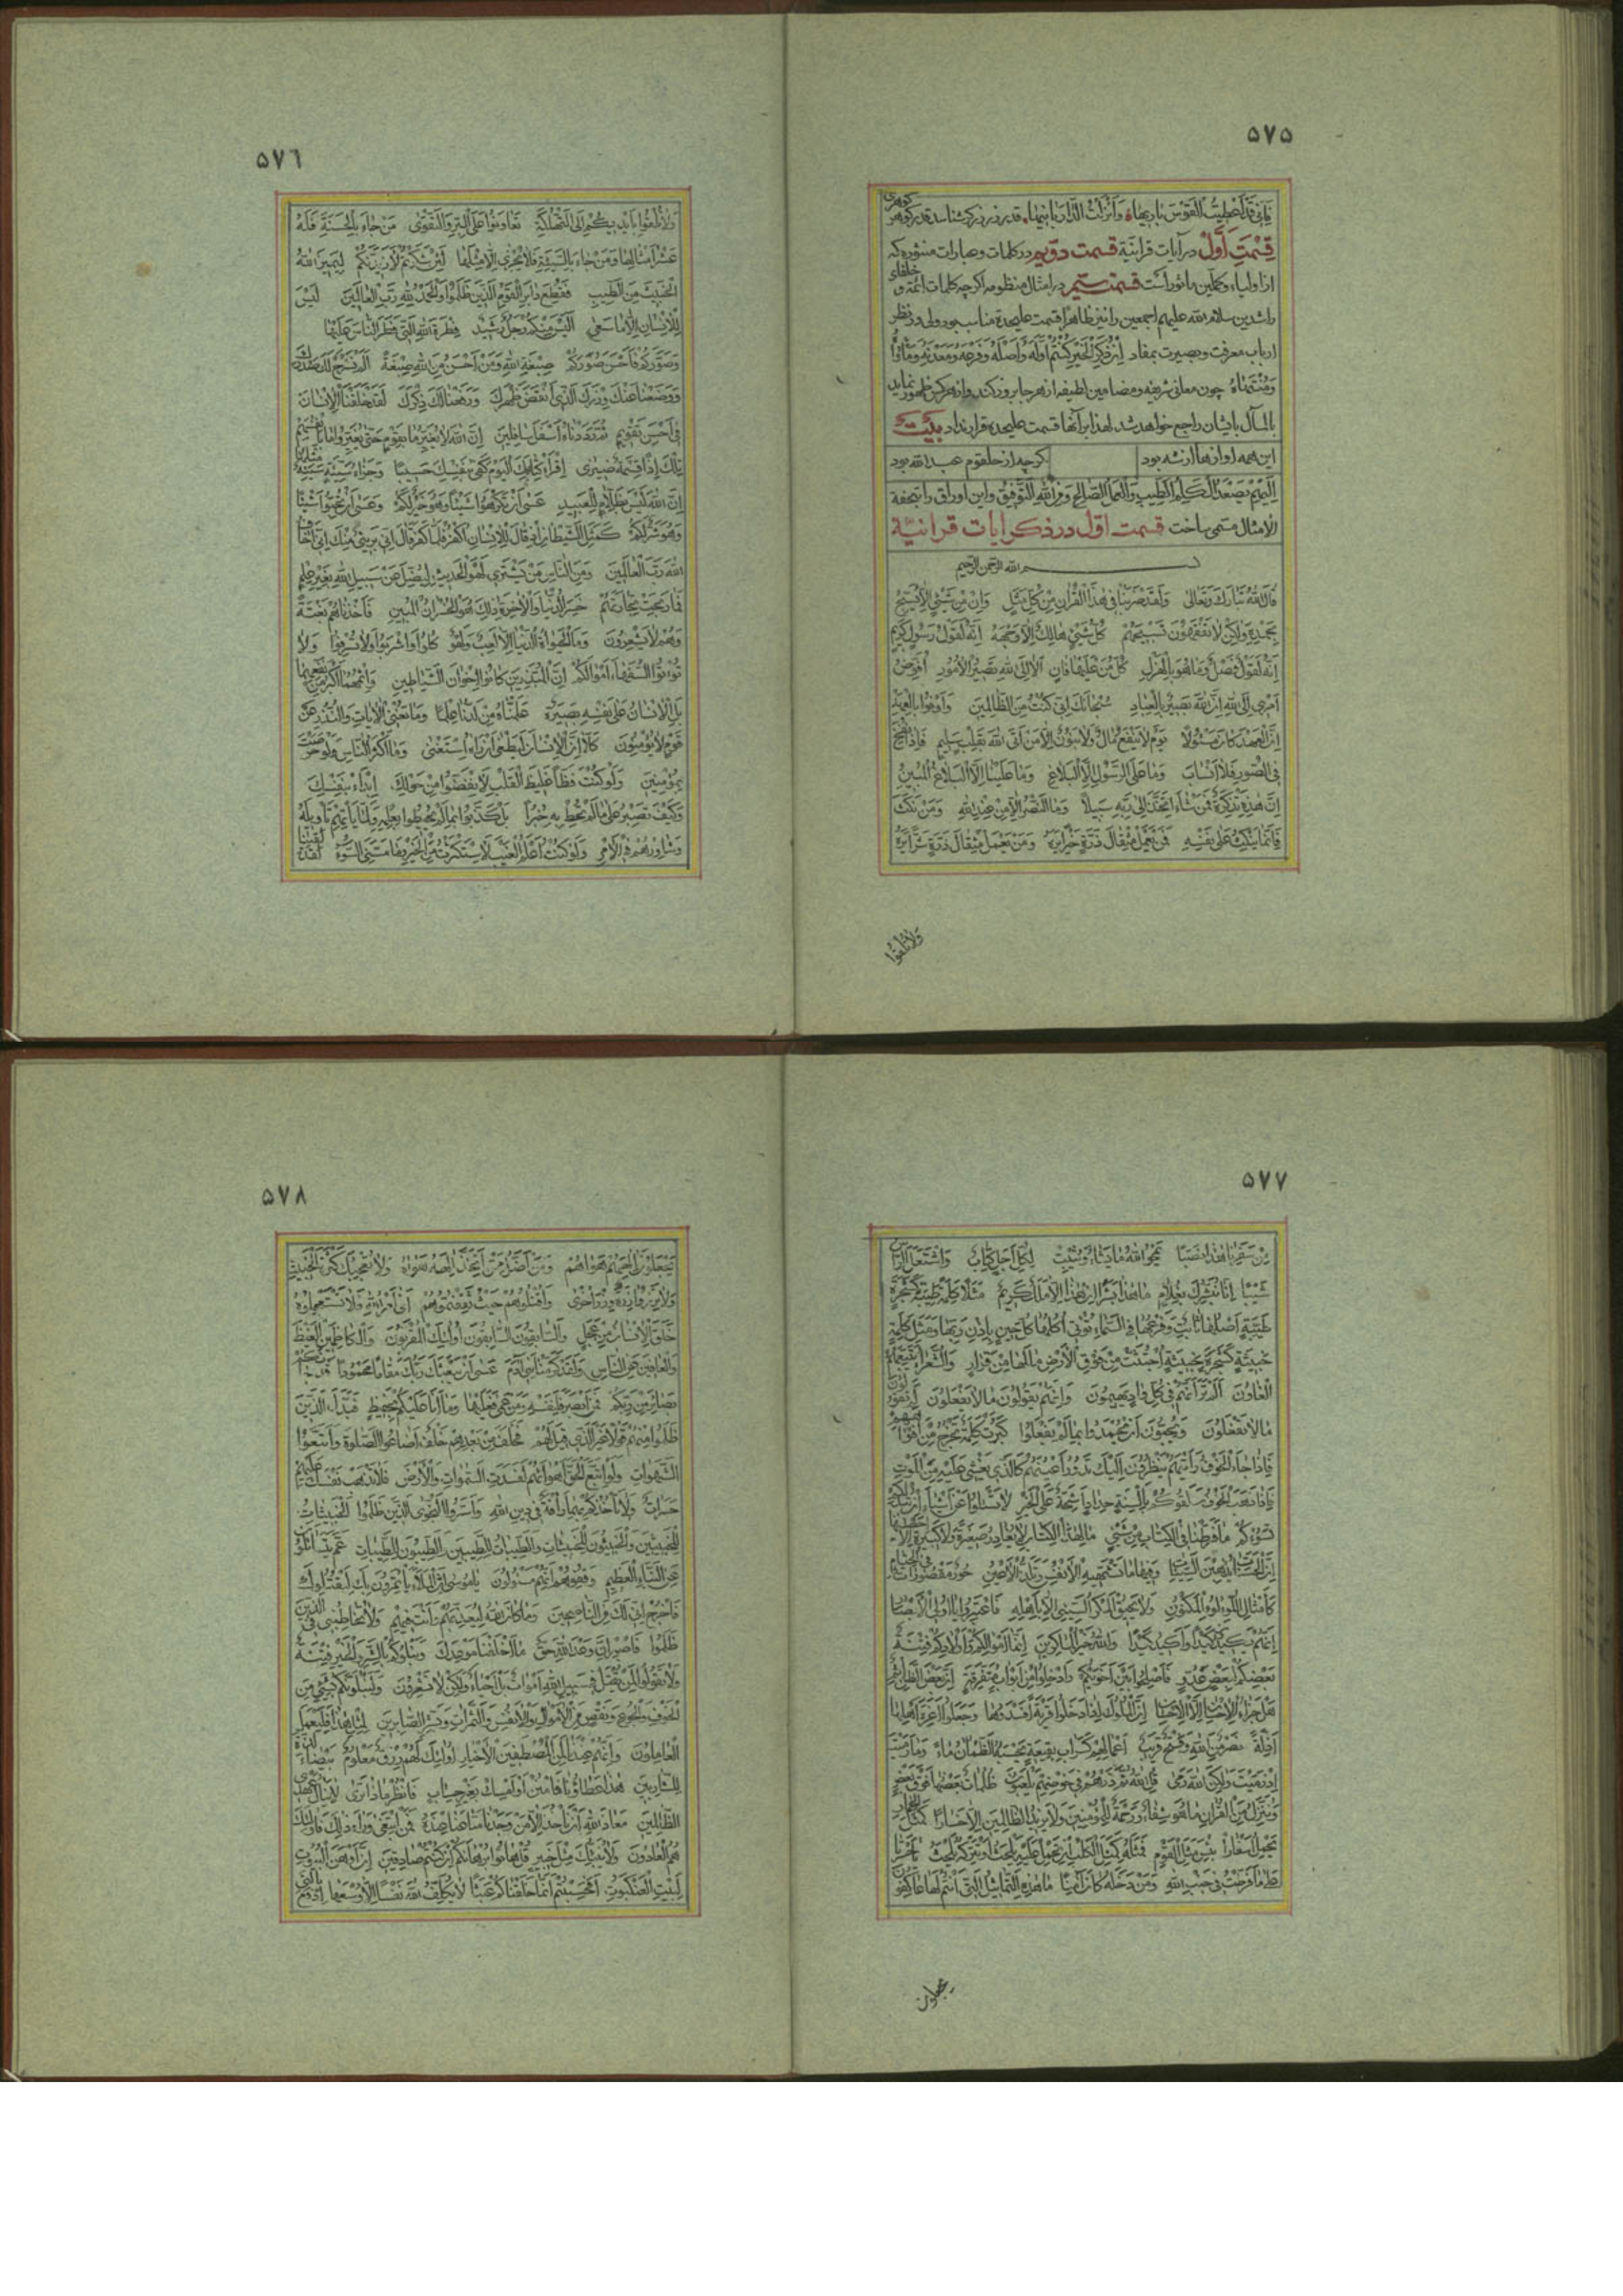 ۵۷۵
فَإِنّی قَد أَعطیتُ القَوسَ باریها وَأَنزَلتُ الدّارَ بانیها، قدر زر زرگر شناسد قدر گوهر گوهری
قِسمَتِ أَوَّل در آیات قرآنیّه قسمت دویم در کلمات و عبارات منثوره که
از اولیاء و کملین ماثور است قسمت سیّم در امثال منظومه اگرچه کلمات ائمّه و خلفای
راشدین سلام الله علیهم اجمعین را نیز ظاهرا قسمت علیحده مناسب بود ولی در نظر
ارباب معرفت و بصیرت بمفاد اِن ذُکِرَ الخَیرُ کُنتُم اَوَّلَهُ وَاَصلَهُ وَفَرعَهُ وَمَعدِنَهُ وَمَأواهُ
وَمُنتَهاهُ چون معانی شریفه و مضامین لطیفه از هر جا بروز کند و از هر کس ظهور نماید
بالمآل بایشان راجع خواهد شد لهذا برای آنها قسمت علیحده قرار نداد بیت
این همه آوازها از شه بود گرچه از حلقوم عبد الله بود
اِلَیهِ یَصعَدُ الکَلِمُ الطَّیِّبُ وَالعَمَلُ الصّالِحُ وَمِنَ اللهِ التَّوفیقُ و این اوراق را بتحفة
الامثال مسمّی ساخت قسمت اوّل در ذکر آیات قرآنیّه
بسم الله الرحمن الرحیم
قالَ اللهُ تَبارَكَ وَتَعالى وَلَقَد ضَرَبنا في هذَا القُرآنِ مِن كُلِّ مَثَلٍ وَاِن مِن شَيءٍ اِلّا يُسَبِّحُ
بِحَمدِهِ وَلكِن لا تَفقَهونَ تَسبيحَهُم كُلُّ شَيءٍ هالِكٌ اِلّا وَجهَهُ اِنَّهُ لَقَولُ رَسولٍ كَريمٍ
اِنَّهُ لَقَولٌ فَصلٌ وَما هُوَ بِالهَزلِ كُلُّ مَن عَلَيها فانٍ اَلا اِلَى اللهِ تَصيرُ الاُمورُ اُفَوِّضُ
اَمري اِلَى اللهِ اِنَّ اللهَ بَصيرٌ بِالعِبادِ سُبحانَكَ اِنّي كُنتُ مِنَ الظّالِمينَ وَاَوفوا بِالعَهدِ
اِنَّ العَهدَ كانَ مَسئولًا يَومَ لا يَنفَعُ مالٌ وَلا بَنونَ اِلّا مَن اَتَى اللهَ بِقَلبٍ سَليمٍ فَاِذا نُفِخَ
فِي الصّورِ فَلا اَنسابَ وَما عَلَى الرَّسولِ اِلَّا البَلاغُ وَما عَلَينا اِلَّا البَلاغُ المُبينُ
اِنَّ هذِهِ تَذكِرَةٌ فَمَن شاءَ اتَّخَذَ اِلى رَبِّهِ سَبيلًا وَمَا النَّصرُ اِلّا مِن عِندِ اللهِ وَمَن نَكَثَ
فَاِنَّما يَنكُثُ عَلى نَفسِهِ فَمَن يَعمَل مِثقالَ ذَرَّةٍ خَيرًا يَرَهُ وَمَن يَعمَل مِثقالَ ذَرَّةٍ شَرًّا يَرَهُ
وَلا تُلقوا
۵۷۶
وَلا تُلقوا بِاَيديكُم اِلَى التَّهلُكَةِ تَعاوَنوا عَلَى البِرِّ وَالتَّقوى مَن جاءَ بِالحَسَنَةِ فَلَهُ
عَشرُ اَمثالِها وَمَن جاءَ بِالسَّيِّئَةِ فَلا يُجزى اِلّا مِثلَها لَئِن شَكَرتُم لَاَزيدَنَّكُم لِيَميزَ اللهُ
الخَبيثَ مِنَ الطَّيِّبِ فَقُطِعَ دابِرُ القَومِ الَّذينَ ظَلَموا وَالحَمدُ لِلّهِ رَبِّ العالَمينَ لَيسَ
لِلاِنسانِ اِلّا ما سَعى اَلَيسَ مِنكُم رَجُلٌ رَشيدٌ فِطرَةَ اللهِ الَّتي فَطَرَ النّاسَ عَلَيها
وَصَوَّرَكُم فَاَحسَنَ صُوَرَكُم صِبغَةَ اللهِ وَمَن اَحسَنُ مِنَ اللهِ صِبغَةً اَلَم نَشرَح لَكَ صَدرَكَ
وَوَضَعنا عَنكَ وِزرَكَ الَّذي اَنقَضَ ظَهرَكَ وَرَفَعنا لَكَ ذِكرَكَ لَقَد خَلَقنَا الاِنسانَ
في اَحسَنِ تَقويمٍ ثُمَّ رَدَدناهُ اَسفَلَ سافِلينَ اِنَّ اللهَ لا يُغَيِّرُ ما بِقَومٍ حَتّى يُغَيِّروا ما بِاَنفُسِهِم
تِلكَ اِذًا قِسمَةٌ ضيزى اِقرَأ كِتابَكَ كَفى بِنَفسِكَ اليَومَ حَسيبًا وَجَزاءُ سَيِّئَةٍ سَيِّئَةٌ مِثلُها
اِنَّ اللهَ لَيسَ بِظَلّامٍ لِلعَبيدِ عَسى اَن تَكرَهوا شَيئًا وَهُوَ خَيرٌ لَكُم وَعَسى اَن تُحِبّوا شَيئًا
وَهُوَ شَرٌّ لَكُم كَمَثَلِ الشَّيطانِ اِذ قالَ لِلاِنسانِ اكفُر فَلَمّا كَفَرَ قالَ اِنّي بَريءٌ مِنكَ اِنّي اَخافُ
اللهَ رَبَّ العالَمينَ وَمِنَ النّاسِ مَن يَشتَري لَهوَ الحَديثِ لِيُضِلَّ عَن سَبيلِ اللهِ بِغَيرِ عِلمٍ
فَما رَبِحَت تِجارَتُهُم خَسِرَ الدُّنيا وَالآخِرَةَ ذلِكَ هُوَ الخُسرانُ المُبينُ فَاَخَذناهُم بَغتَةً
وَهُم لا يَشعُرونَ وَمَا الحَيوةُ الدُّنيا اِلّا لَعِبٌ وَلَهوٌ كُلوا وَاشرَبوا وَلا تُسرِفوا وَلا
تُؤتوا السُّفَهاءَ اَموالَكُم اِنَّ المُبَذِّرينَ كانوا اِخوانَ الشَّياطينِ وَاِثمُهُما اَكبَرُ مِن نَفعِهِما
بَلِ الاِنسانُ عَلى نَفسِهِ بَصيرَةٌ عَلَّمناهُ مِن لَدُنّا عِلمًا وَما تُغنِي الآياتُ وَالنُّذُرُ عَن
قَومٍ لا يُؤمِنونَ كَلّا اِنَّ الاِنسانَ لَيَطغى اَن رَآهُ استَغنى وَما اَكثَرُ النّاسِ وَلَو حَرَصتَ
بِمُؤمِنينَ وَلَو كُنتَ فَظًّا غَليظَ القَلبِ لَانفَضّوا مِن حَولِكَ اِبدَأ بِنَفسِكَ
وَكَيفَ تَصبِرُ عَلى ما لَم تُحِط بِهِ خُبرًا بَل كَذَّبوا بِما لَم يُحيطوا بِعِلمِهِ وَلَمّا يَأتِهِم تَأويلُهُ
وَشاوِرهُم فِي الاَمرِ وَلَو كُنتُ اَعلَمُ الغَيبَ لَاستَكثَرتُ مِنَ الخَيرِ وَما مَسَّنِيَ السّوءُ لَقَد لَقينا
۵۷۷
مِن سَفَرِنا هذا نَصَبًا يَمحُو اللهُ ما يَشاءُ وَيُثبِتُ لِكُلِّ اَجَلٍ كِتابٌ وَاشتَعَلَ الرَّأسُ
شَيبًا اِنّا نُبَشِّرُكَ بِغُلامٍ ما هذا بَشَرًا اِن هذا اِلّا مَلَكٌ كَريمٌ مَثَلًا كَلِمَةً طَيِّبَةً كَشَجَرَةٍ
طَيِّبَةٍ اَصلُها ثابِتٌ وَفَرعُها فِي السَّماءِ تُؤتي اُكُلَها كُلَّ حينٍ بِاِذنِ رَبِّها وَمَثَلُ كَلِمَةٍ
خَبيثَةٍ كَشَجَرَةٍ خَبيثَةٍ اجتُثَّت مِن فَوقِ الاَرضِ ما لَها مِن قَرارٍ وَالشُّعَراءُ يَتَّبِعُهُمُ
الغاوونَ اَلَم تَرَ اَنَّهُم في كُلِّ وادٍ يَهيمونَ وَاَنَّهُم يَقولونَ ما لا يَفعَلونَ لِمَ تَقولونَ
ما لا تَفعَلونَ وَيُحِبّونَ اَن يُحمَدوا بِما لَم يَفعَلوا كَبُرَت كَلِمَةً تَخرُجُ مِن اَفواهِهِم
فَاِذا جاءَ الخَوفُ رَاَيتَهُم يَنظُرونَ اِلَيكَ تَدورُ اَعيُنُهُم كَالَّذي يُغشى عَلَيهِ مِنَ المَوتِ
فَاِذا ذَهَبَ الخَوفُ سَلَقوكُم بِاَلسِنَةٍ حِدادٍ اَشِحَّةً عَلَى الخَيرِ لا تَسئَلوا عَن اَشياءَ اِن تُبدَ لَكُم
تَسُؤكُم ما فَرَّطنا فِي الكِتابِ مِن شَيءٍ مالِ هذَا الكِتابِ لا يُغادِرُ صَغيرَةً وَلا كَبيرَةً اِلّا اَحصيها
اِنَّ الحَسَناتِ يُذهِبنَ السَّيِّئاتِ وَفيها ما تَشتَهيهِ الاَنفُسُ وَتَلَذُّ الاَعيُنُ حورٌ مَقصوراتٌ فِي الخِيامِ
كَاَمثالِ اللُّؤلُؤِ المَكنونِ وَلا يَحيقُ المَكرُ السَّيِّئُ اِلّا بِاَهلِهِ فَاعتَبِروا يا اُولِي الاَبصارِ
اِنَّهُم يَكيدونَ كَيدًا وَاَكيدُ كَيدًا وَاللهُ خَيرُ الماكِرينَ اِنَّما اَموالُكُم وَاَولادُكُم فِتنَةٌ
بَعضُكُم لِبَعضٍ عَدُوٌّ فَاَصلِحوا بَينَ اَخَوَيكُم وَادخُلوا مِن اَبوابٍ مُتَفَرِّقَةٍ اِنَّ بَعضَ الظَّنِّ اِثمٌ
هَل جَزاءُ الاِحسانِ اِلَّا الاِحسانُ اِنَّ المُلوكَ اِذا دَخَلوا قَريَةً اَفسَدوها وَجَعَلوا اَعِزَّةَ اَهلِها
اَذِلَّةً نَصرٌ مِنَ اللهِ وَفَتحٌ قَريبٌ اَعمالُهُم كَسَرابٍ بِقيعَةٍ يَحسَبُهُ الظَّمآنُ ماءً وَما رَمَيتَ
اِذ رَمَيتَ وَلكِنَّ اللهَ رَمى قُلِ اللهُ ثُمَّ ذَرهُم في خَوضِهِم يَلعَبونَ ظُلُماتٌ بَعضُها فَوقَ بَعضٍ
وَنُنَزِّلُ مِنَ القُرآنِ ما هُوَ شِفاءٌ وَرَحمَةٌ لِلمُؤمِنينَ وَلا يَزيدُ الظّالِمينَ اِلّا خَسارًا كَمَثَلِ الحِمارِ
يَحمِلُ اَسفارًا بِئسَ مَثَلُ القَومِ فَمَثَلُهُ كَمَثَلِ الكَلبِ اِن تَحمِل عَلَيهِ يَلهَث اَو تَترُكهُ يَلهَث يا حَسرَتا
عَلى ما فَرَّطتُ في جَنبِ اللهِ وَمَن دَخَلَهُ كانَ آمِنًا ما هذِهِ التَّماثيلُ الَّتي اَنتُم لَها عاكِفونَ
يجعلون
۵۷۸
يَجعَلونَ اِلهَهُم هَواهُم وَمَن اَضَلُّ مِمَّن اتَّخَذَ اِلهَهُ هَواهُ وَلا تُعجِبكَ كَثرَةُ الخَبيثِ
وَلا تَزِرُ وازِرَةٌ وِزرَ اُخرى وَاقتُلوهُم حَيثُ ثَقِفتُموهُم اَتى اَمرُ اللهِ فَلا تَستَعجِلوهُ
خُلِقَ الاِنسانُ مِن عَجَلٍ وَالسّابِقونَ السّابِقونَ اُولئِكَ المُقَرَّبونَ وَالكاظِمينَ الغَيظَ
وَالعافينَ عَنِ النّاسِ وَلَقَد كَرَّمنا بَني آدَمَ عَسى اَن يَبعَثَكَ رَبُّكَ مَقامًا مَحمودًا قَد جاءَكُم
بَصائِرُ مِن رَبِّكُم فَمَن اَبصَرَ فَلِنَفسِهِ وَمَن عَمِيَ فَعَلَيها وَما اَنَا عَلَيكُم بِحَفيظٍ فَبَدَّلَ الَّذينَ
ظَلَموا مِنهُم قَولًا غَيرَ الَّذي قيلَ لَهُم فَخَلَفَ مِن بَعدِهِم خَلفٌ اَضاعُوا الصَّلوةَ وَاتَّبَعُوا
الشَّهَواتِ وَلَوِ اتَّبَعَ الحَقُّ اَهواءَهُم لَفَسَدَتِ السَّمواتُ وَالاَرضُ فَلا تَذهَب نَفسُكَ عَلَيهِم
حَسَراتٍ وَلا تَأخُذكُم بِهِما رَأفَةٌ في دينِ اللهِ وَاَسَرُّوا النَّجوَى الَّذينَ ظَلَموا الخَبيثاتُ
لِلخَبيثينَ وَالخَبيثونَ لِلخَبيثاتِ وَالطَّيِّباتُ لِلطَّيِّبينَ وَالطَّيِّبونَ لِلطَّيِّباتِ عَمَّ يَتَساءَلونَ
عَنِ النَّبَاِ العَظيمِ وَقِفوهُم اِنَّهُم مَسئولونَ يا موسى اِنَّ المَلَاَ يَأتَمِرونَ بِكَ لِيَقتُلوكَ
فَاخرُج اِنّي لَكَ مِنَ النّاصِحينَ وَما كانَ اللهُ لِيُعَذِّبَهُم وَاَنتَ فيهِم وَلا تُخاطِبني فِي الَّذينَ
ظَلَموا فَاصبِر اِنَّ وَعدَ اللهِ حَقٌّ ما اَخلَفنا مَوعِدَكَ وَنَبلوكُم بِالشَّرِّ وَالخَيرِ فِتنَةً
وَلا تَقولوا لِمَن يُقتَلُ في سَبيلِ اللهِ اَمواتٌ بَل اَحياءٌ وَلكِن لا تَشعُرونَ وَلَنَبلُوَنَّكُم بِشَيءٍ مِنَ
الخَوفِ وَالجوعِ وَنَقصٍ مِنَ الاَموالِ وَالاَنفُسِ وَالثَّمَراتِ وَبَشِّرِ الصّابِرينَ لِمِثلِ هذا فَليَعمَلِ
العامِلونَ وَاِنَّهُم عِندَنا لَمِنَ المُصطَفَينَ الاَخيارِ اُولئِكَ لَهُم رِزقٌ مَعلومٌ بَيضاءَ لَذَّةٍ
لِلشّارِبينَ هذا عَطاؤُنا فَامنُن اَو اَمسِك بِغَيرِ حِسابٍ فَانظُر ماذا تَرى لا يَنالُ عَهدِي
الظّالِمينَ مَعاذَ اللهِ اَن نَأخُذَ اِلّا مَن وَجَدنا مَتاعَنا عِندَهُ فَمَنِ ابتَغى وَراءَ ذلِكَ فَاُولئِكَ
هُمُ العادونَ وَلا يُنَبِّئُكَ مِثلُ خَبيرٍ قُل هاتوا بُرهانَكُم اِن كُنتُم صادِقينَ اِنَّ اَوهَنَ البُيوتِ
لَبَيتُ العَنكَبوتِ اَفَحَسِبتُم اَنَّما خَلَقناكُم عَبَثًا لا يُكَلِّفُ اللهُ نَفسًا اِلّا وُسعَها اِدفَع بِالَّتي